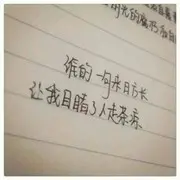 光的
谁的一句来日方长
让我目睹了人走茶凉